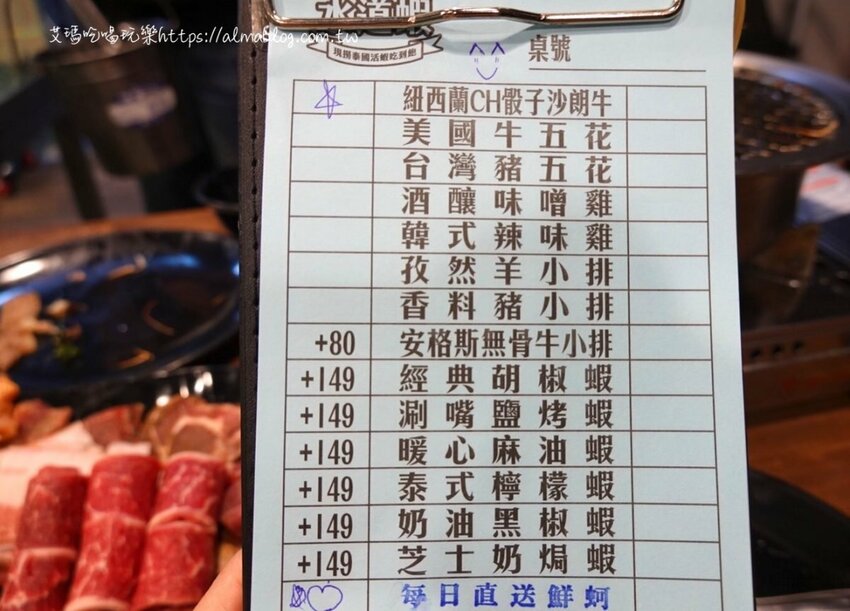 艾瑪吃喝玩樂https://almablog.com.tw
水道蝦
現撈泰國活蝦吃到飽
桌號
紐西蘭CH骰子沙朗牛
美國牛五花
台灣豬五花
酒釀味噌雞
韓式辣味雞
孜然羊小排
香料豬小排
+80 安格斯無骨牛小排
+149 經典胡椒蝦
+149 涮嘴鹽烤蝦
+149 暖心麻油蝦
+149 泰式檸檬蝦
+149 奶油黑椒蝦
+149 芝士奶焗蝦
每日直送鮮蚵